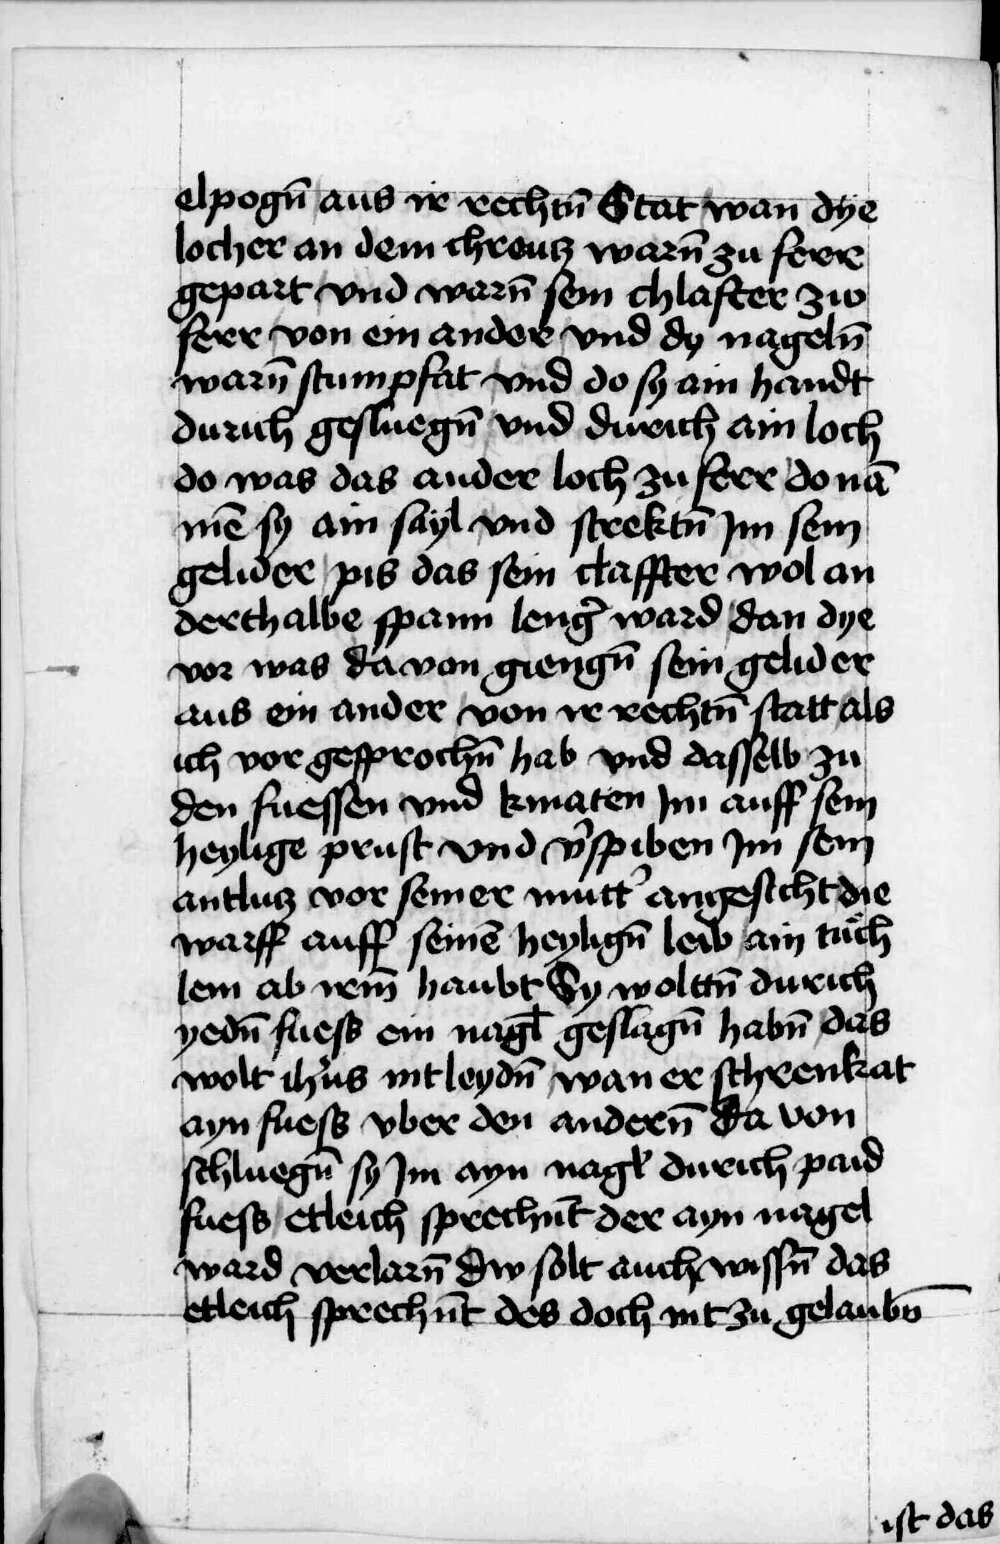 elpogn̄ aus ir rechtn̄ Stat wan dye
locher an dem chreutz warn̄ zu ferr
gepart vnd warn̄ sein chlafter zw
ferr von ein ander vnd dy nageln̄
warn̄ stumpfat vnd do sy ain handt
durich gesluegn̄ vnd durich ain loch
do was das ander loch zu ferr do nā
mē sy ain sayl vnd strektn̄ Im sein
gelider pis das sein claffter wol an
derthalbe spann leng̉ ward dan dye
vor was da von giengn̄ sein gelider
aus ein ander von ir rechtn̄ statt als
ich vor gesprochn̄ hab vnd dasselb zu
den fuessen vnd knıaten Im auff sein
heylige prust vnd v̉spiben Im sein
antlutz vor seiner mutt̉ angesicht die
warff auff seinē heylign̄ leib ain tüch
lein ab irm̄ haubt Sy woltn̄ durich
yedn̄ fuess ein nagl̄ geslagn̄ habn̄ das
wolt ih̉us nit leydn̄ wan er schrenkat
ayn fuess vber den andern̄ Da von
schluegn̄ sy Im ayn nagl̄ durich paid
fuess etleich sprechn̄t der ayn nagel
ward verlarn̄ Dw solt auch wissn̄ das
etleich sprechn̄t des doch nit zu gelaubn̄
ist das